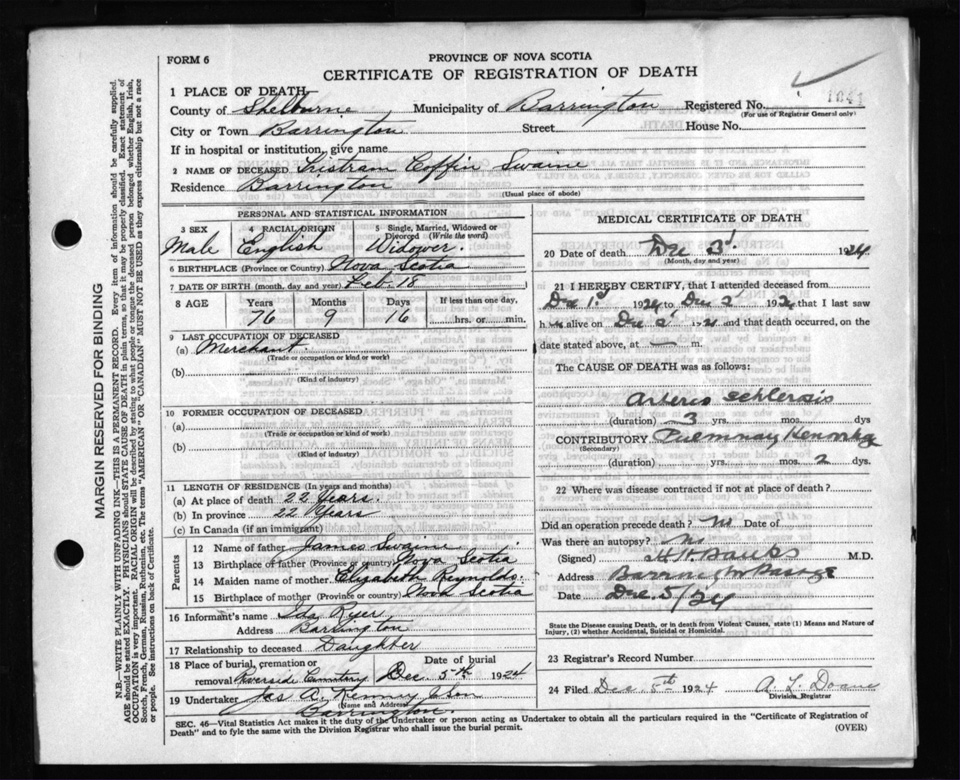 FORM 6
PROVINCE OF NOVA SCOTIA
CERTIFICATE OF REGISTRATION OF DEATH
1 PLACE OF DEATH
County of Shelburne Municipality of Barrington Registered No. 1841
(For use of Registrar General only)
City or Town Barrington Street House No.
If in hospital or institution, give name
2 NAME OF DECEASED Tristram Coffin Swaine
Residence Barrington
(Usual place of abode)
PERSONAL AND STATISTICAL INFORMATION
3 SEX 4 RACIAL ORIGIN 5 Single, Married, Widowed or Divorced (Write the word)
Male English Widower.
6 BIRTHPLACE (Province or Country) Nova Scotia
7 DATE OF BIRTH (month, day and year) Feb. 18
8 AGE Years Months Days If less than one day,
76 9 16 hrs. or min.
9 LAST OCCUPATION OF DECEASED
(a) Merchant.
(Trade or occupation or kind of work)
(b)
(Kind of industry)
10 FORMER OCCUPATION OF DECEASED
(a)
(Trade or occupation or kind of work)
(b)
(Kind of industry)
11 LENGTH OF RESIDENCE (In years and months)
(a) At place of death 22 Years.
(b) In province 22 Years
(c) In Canada (if an immigrant)
Parents
12 Name of father James Swaine
13 Birthplace of father (Province or country) Nova Scotia
14 Maiden name of mother Elizabeth Reynolds.
15 Birthplace of mother (Province or country) Nova Scotia
16 Informant's name Ida Ryer
Address Barrington
17 Relationship to deceased Daughter
18 Place of burial, cremation or removal Riverside Cemetery Date of burial Dec. 5th 1924
19 Undertaker Jas A. Kenney & Son
(Name and Address)
Barrington.
MEDICAL CERTIFICATE OF DEATH
20 Date of death Dec 3' 1924
(Month, day and year)
21 I HEREBY CERTIFY, that I attended deceased from
Dec 1' 1924 to Dec 2' 1924 that I last saw
h alive on Dec 2' 1924 and that death occurred, on
date stated above, at — m.
The CAUSE OF DEATH was as follows:
Arterio Schlerosis
(duration) 3 yrs. mos. dys
CONTRIBUTORY Pulmnary
(Secondary)
(duration) yrs. mos. 2 dys.
22 Where was disease contracted if not at place of death?
Did an operation precede death? No Date of
Was there an autopsy? No
(Signed) Banks M.D.
Address Barrington Passage
Date Dec. 5/24
State the Disease causing Death, or in death from Violent Causes, state (1) Means and Nature of
Injury, (2) whether Accidental, Suicidal or Homicidal.
23 Registrar's Record Number
24 Filed Dec. 5th 1924 A L Doane
Division Registrar
SEC. 46—Vital Statistics Act makes it the duty of the Undertaker or person acting as Undertaker to obtain all the particulars required in the "Certificate of Registration of
Death" and to fyle the same with the Division Registrar who shall issue the burial permit.
(OVER)
MARGIN RESERVED FOR BINDING
N.B.—WRITE PLAINLY WITH UNFADING INK—THIS IS A PERMANENT RECORD. Every item of information should be carefully supplied.
AGE should be stated EXACTLY. PHYSICIANS should STATE CAUSE OF DEATH in plain terms, so that it may be properly classified. Exact statement of
OCCUPATION is very important. RACIAL ORIGIN will be described by stating to what people or tongue the deceased person belonged whether English, Irish,
Scotch, French, German, Russian, Ruthenian, etc. The terms "AMERICAN" OR "CANADIAN" MUST NOT BE USED as they express citizenship but not a race
or people. See instructions on back of Certificate.